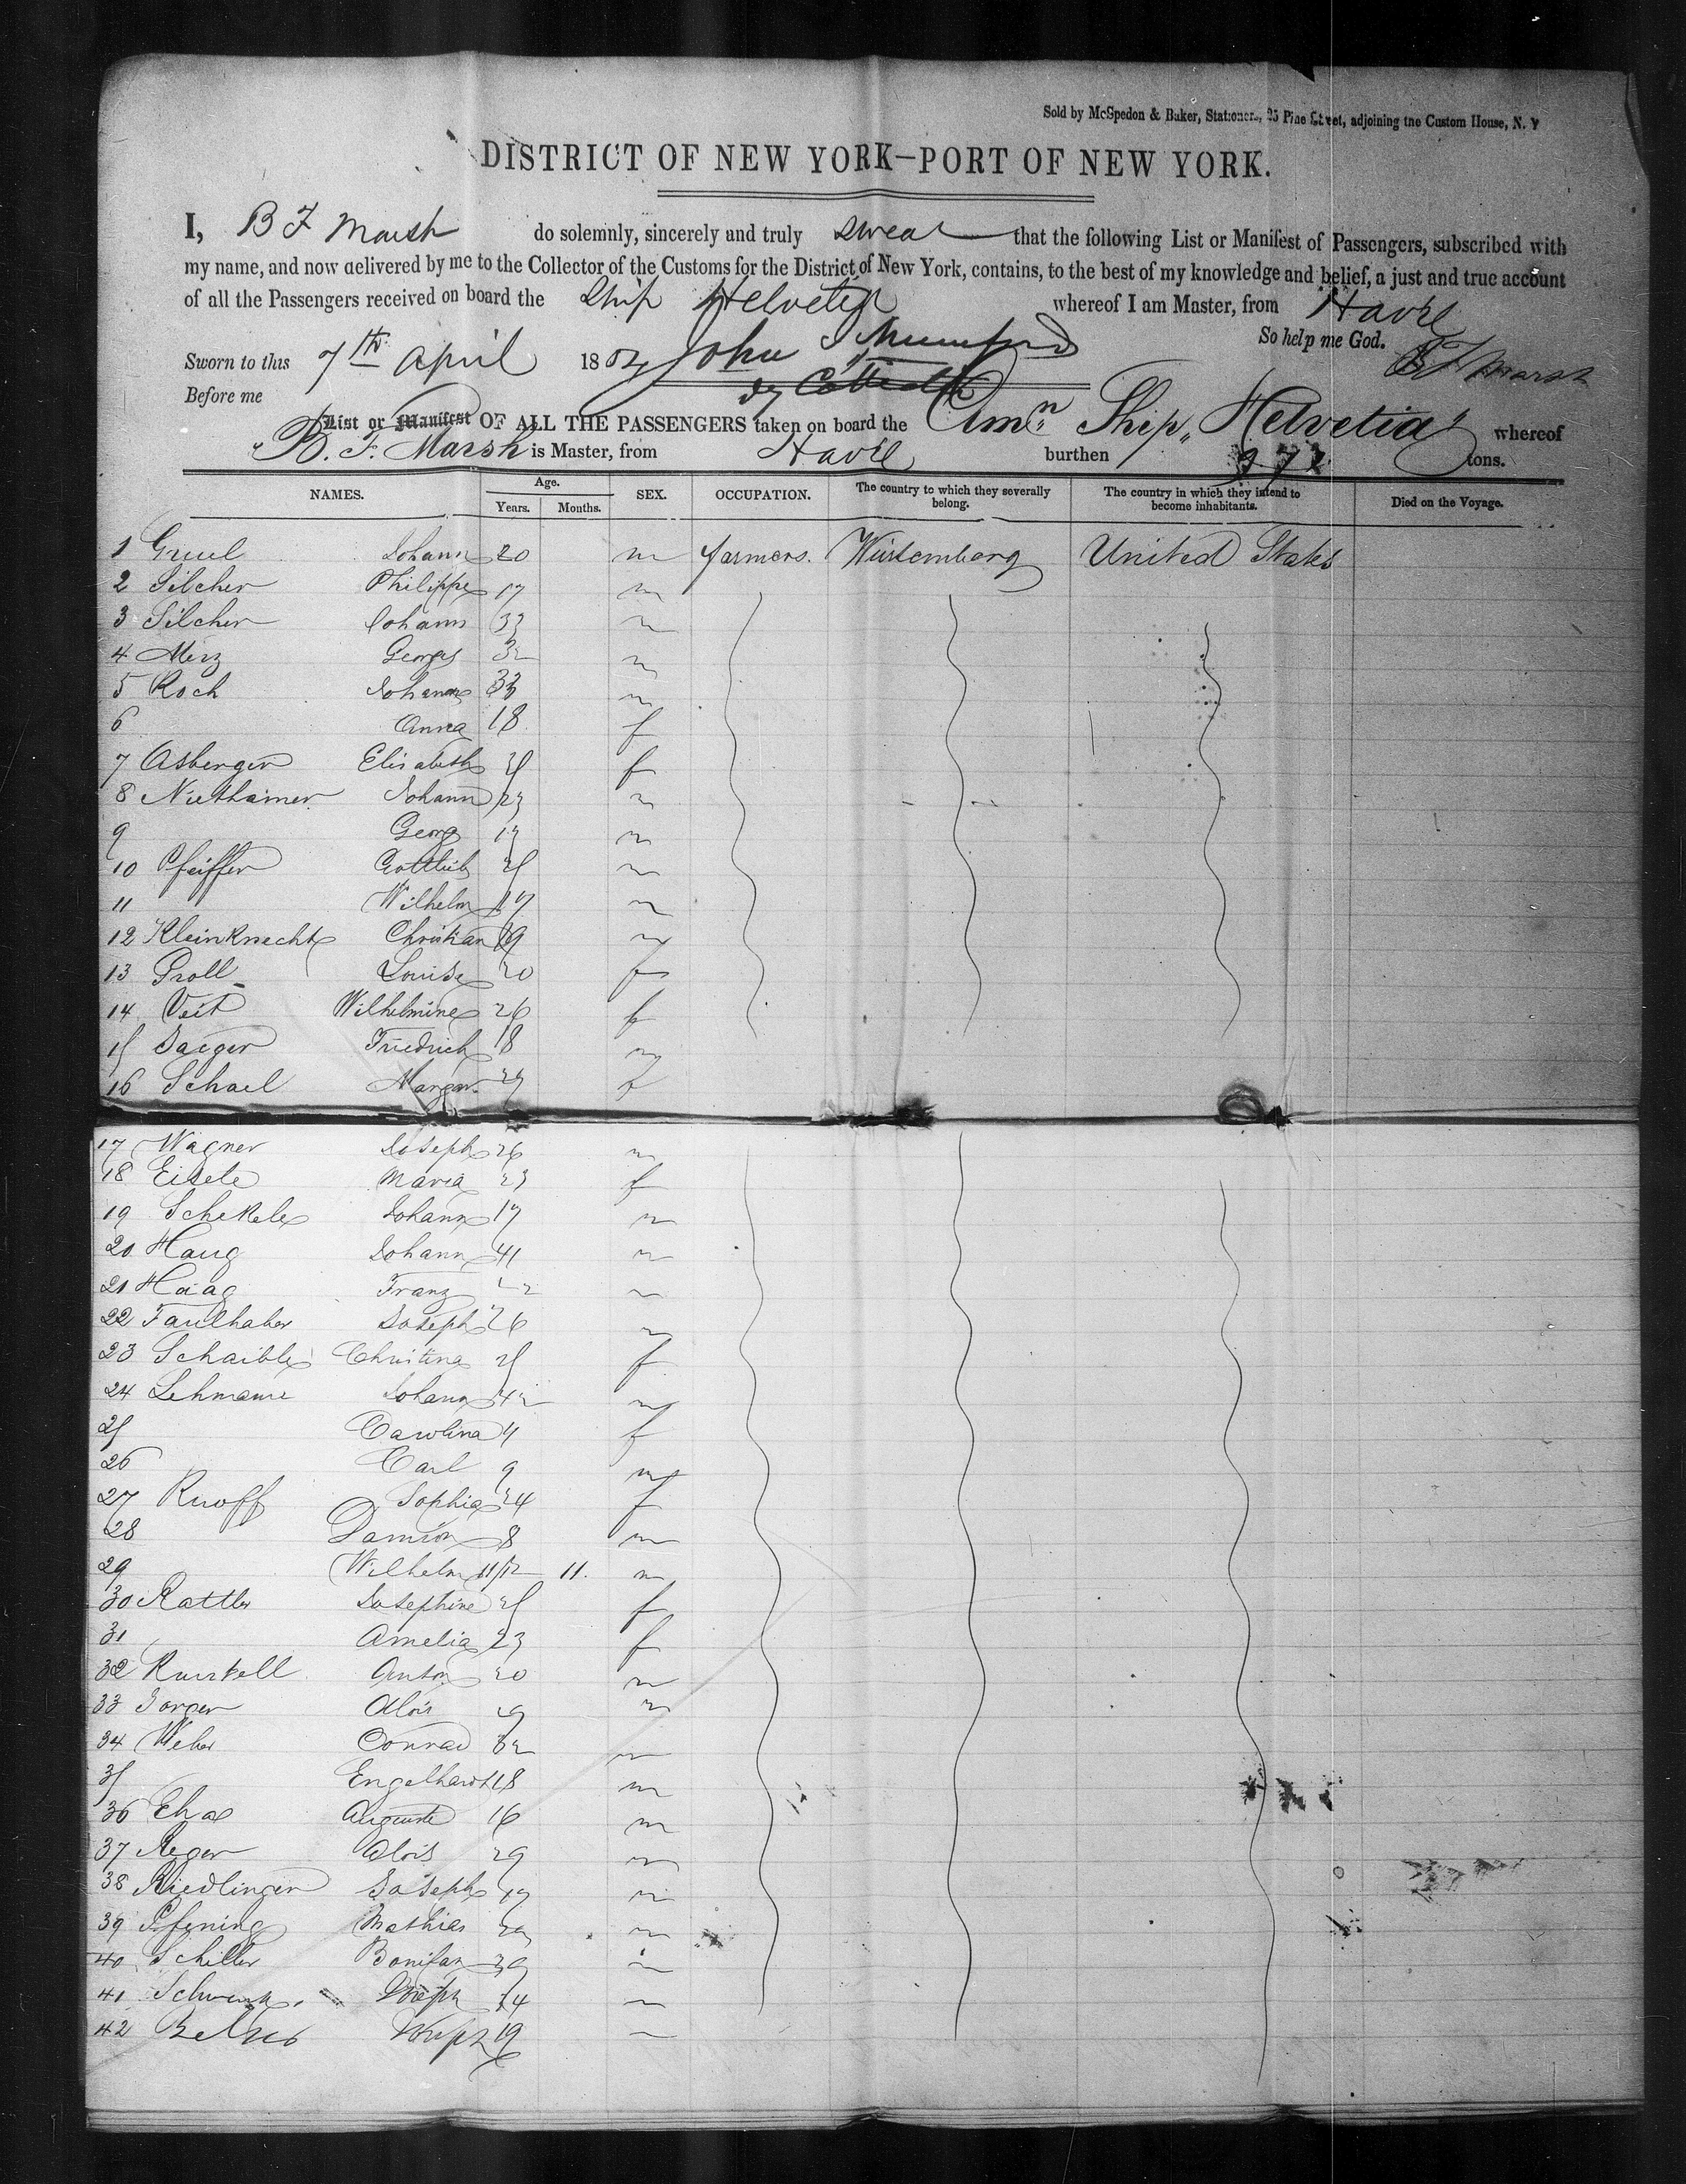 Sold by McSpedon & Baker, Stationers, 25 Pine Street, adjoining the Custom House, N. Y
DISTRICT OF NEW YORK—PORT OF NEW YORK.
I, B F Marsh do solemnly, sincerely and truly swear that the following List or Manifest of Passengers, subscribed with
my name, and now delivered by me to the Collector of the Customs for the District of New York, contains, to the best of my knowledge and belief, a just and true account
of all the Passengers received on board the Ship Helvetia whereof I am Master, from Havre
So help me God.
Sworn to this 7th April 185 John Mumford B F Marsh
Before me
List or Manifest OF ALL THE PASSENGERS taken on board the Amn Ship „Helvetia" whereof
B. F. Marsh is Master, from Havre burthen 971 tons.
NAMES. Age. Years. Months. SEX. OCCUPATION. The country to which they severally belong. The country in which they intend to become inhabitants. Died on the Voyage.
1 Gruel Johann 20 m farmers. Würtemberg United States
2 Silcher Philippe 17 m
3 Silcher Johann 33 m
4 Merz Georg 32 m
5 Koch Johann 33 m
6 Anna 18 f
7 Asberger Elisabeth 25 f
8 Niethamer Johann 23 m
9 Georg 17 m
10 Pfeiffer Gottlieb 25 m
11 Wilhelm 17 m
12 Kleinknecht Christian 19 m
13 Proll Louise 20 f
14 Veit Wilhelmine 26 f
15 Jaeger Friedrich 18 m
16 Schael Margar. 27 f
17 Wagner Joseph 26 m
18 Eisele Maria 23 f
19 Schekele Johann 17 m
20 Haug Johann 41 m
21 Haag Franz 22 m
22 Faulhaber Joseph 26 m
23 Schaible Christina 25 f
24 Lehmann Johann 42 m
25 Carolina 11 f
26 Carl 9 m
27 Knoff Sophia 24 f
28 Damian 8 m
29 Wilhelm 11/12 11. m
30 Rattler Josephine 25 f
31 Amelia 23 f
32 Anton 20 m
33 Alois 29 m
34 Weber Conrad 32 m
35 Engelhardt 18 m
36 Auguste 16 m
37 Reger Alois 29 m
38 Riedlinger Joseph 17 m
39 Pfening Mathias m
40 Schiller Bonifaz 39 m
41 Schwenk Joseph 14 m
42 Joseph 19